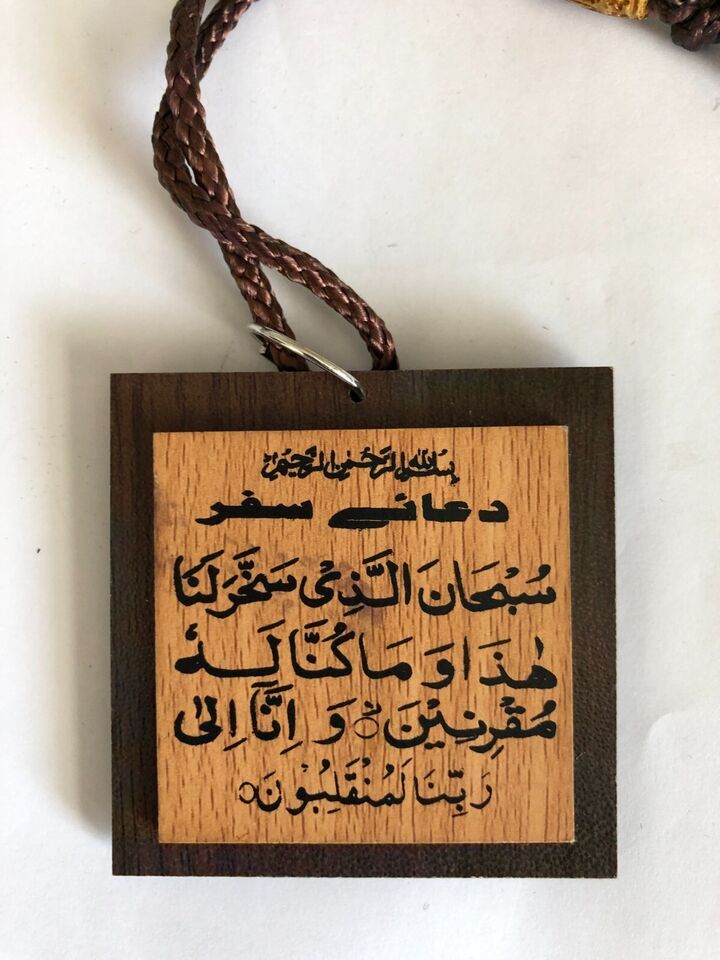 بِسْمِ اللهِ الرَّحْمٰنِ الرَّحِيْمِ
دعائے سفر
سُبْحَانَ الَّذِىْ سَخَّرَ لَنَا
هٰذَا وَ مَا كُنَّا لَهٗ
مُقْرِنِيْنَ ۙ وَ اِنَّا اِلٰى
رَبِّنَا لَمُنْقَلِبُوْنَ ۝